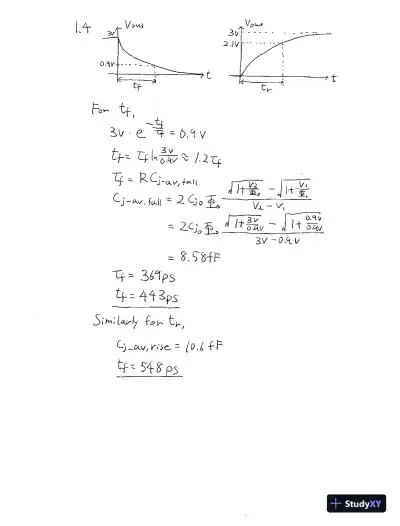 1.4
Vout
3V
0.9V
tf
t
Vout
3V
2.1V
tr
t
For tf,
3V · e^(-tf/τf) = 0.9V
tf = τf ln 3V/0.9V ≈ 1.2τf
τf = RCj-av,fall
Cj-av,fall = 2Cj0 Φ0 (√(1+V2/Φ0) − √(1+V1/Φ0)) / (V2 − V1)
= 2Cj0 Φ0 (√(1+3V/0.9V) − √(1+0.9V/0.9V)) / (3V − 0.9V)
= 8.58fF
τf = 369ps
tf = 443ps
Similarly for tr,
Cj_av,rise = 10.6fF
tf = 548ps
StudyXY